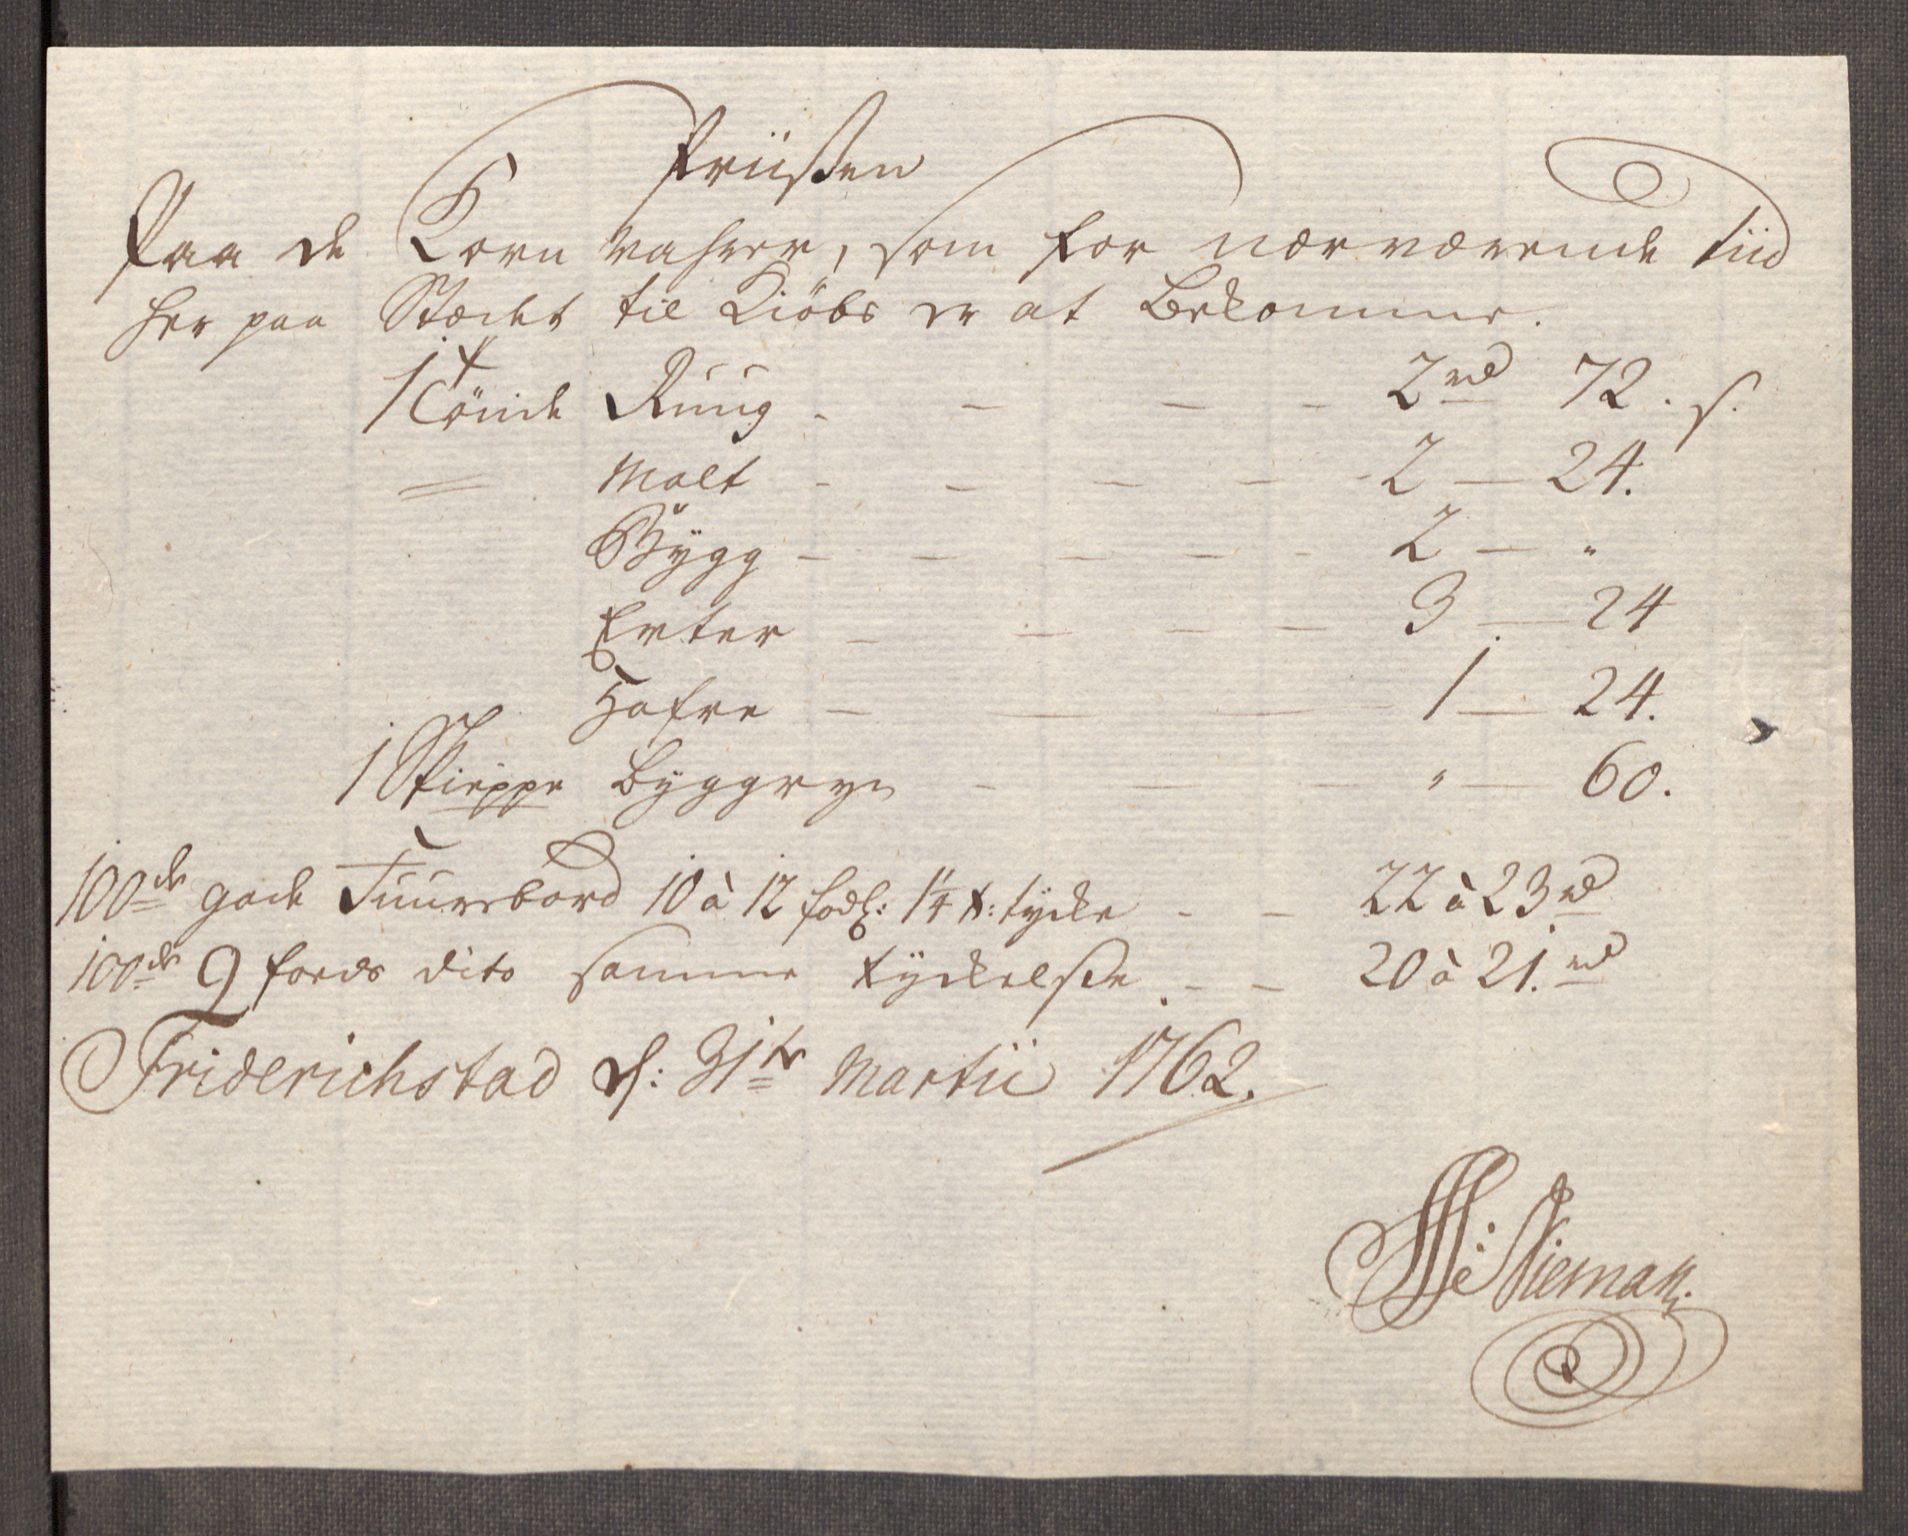 Priisen
Paa de Korn vahrer, som for nærværende tiid
her paa Stædet til Kiöbs er at Bekomme.
1 Tönde Ruug - - - - 2 rd 72. s.
= Malt - - - - - 2 - 24.
Bygg - - - - - 2 - "
Erter - - - - 3 - 24
Hafre - - - 1 - 24.
1 Skieppe byggryn - - - " - 60.
100de gode Fuurrbord 10 à 12 fod l: 1 1/4 t: tycke - - 22 à 23 rd
100de 9 fods dito samme tyckelse - - 20 à 21. rd
Friderichstad d: 31te Martii 1762.
Nieman.